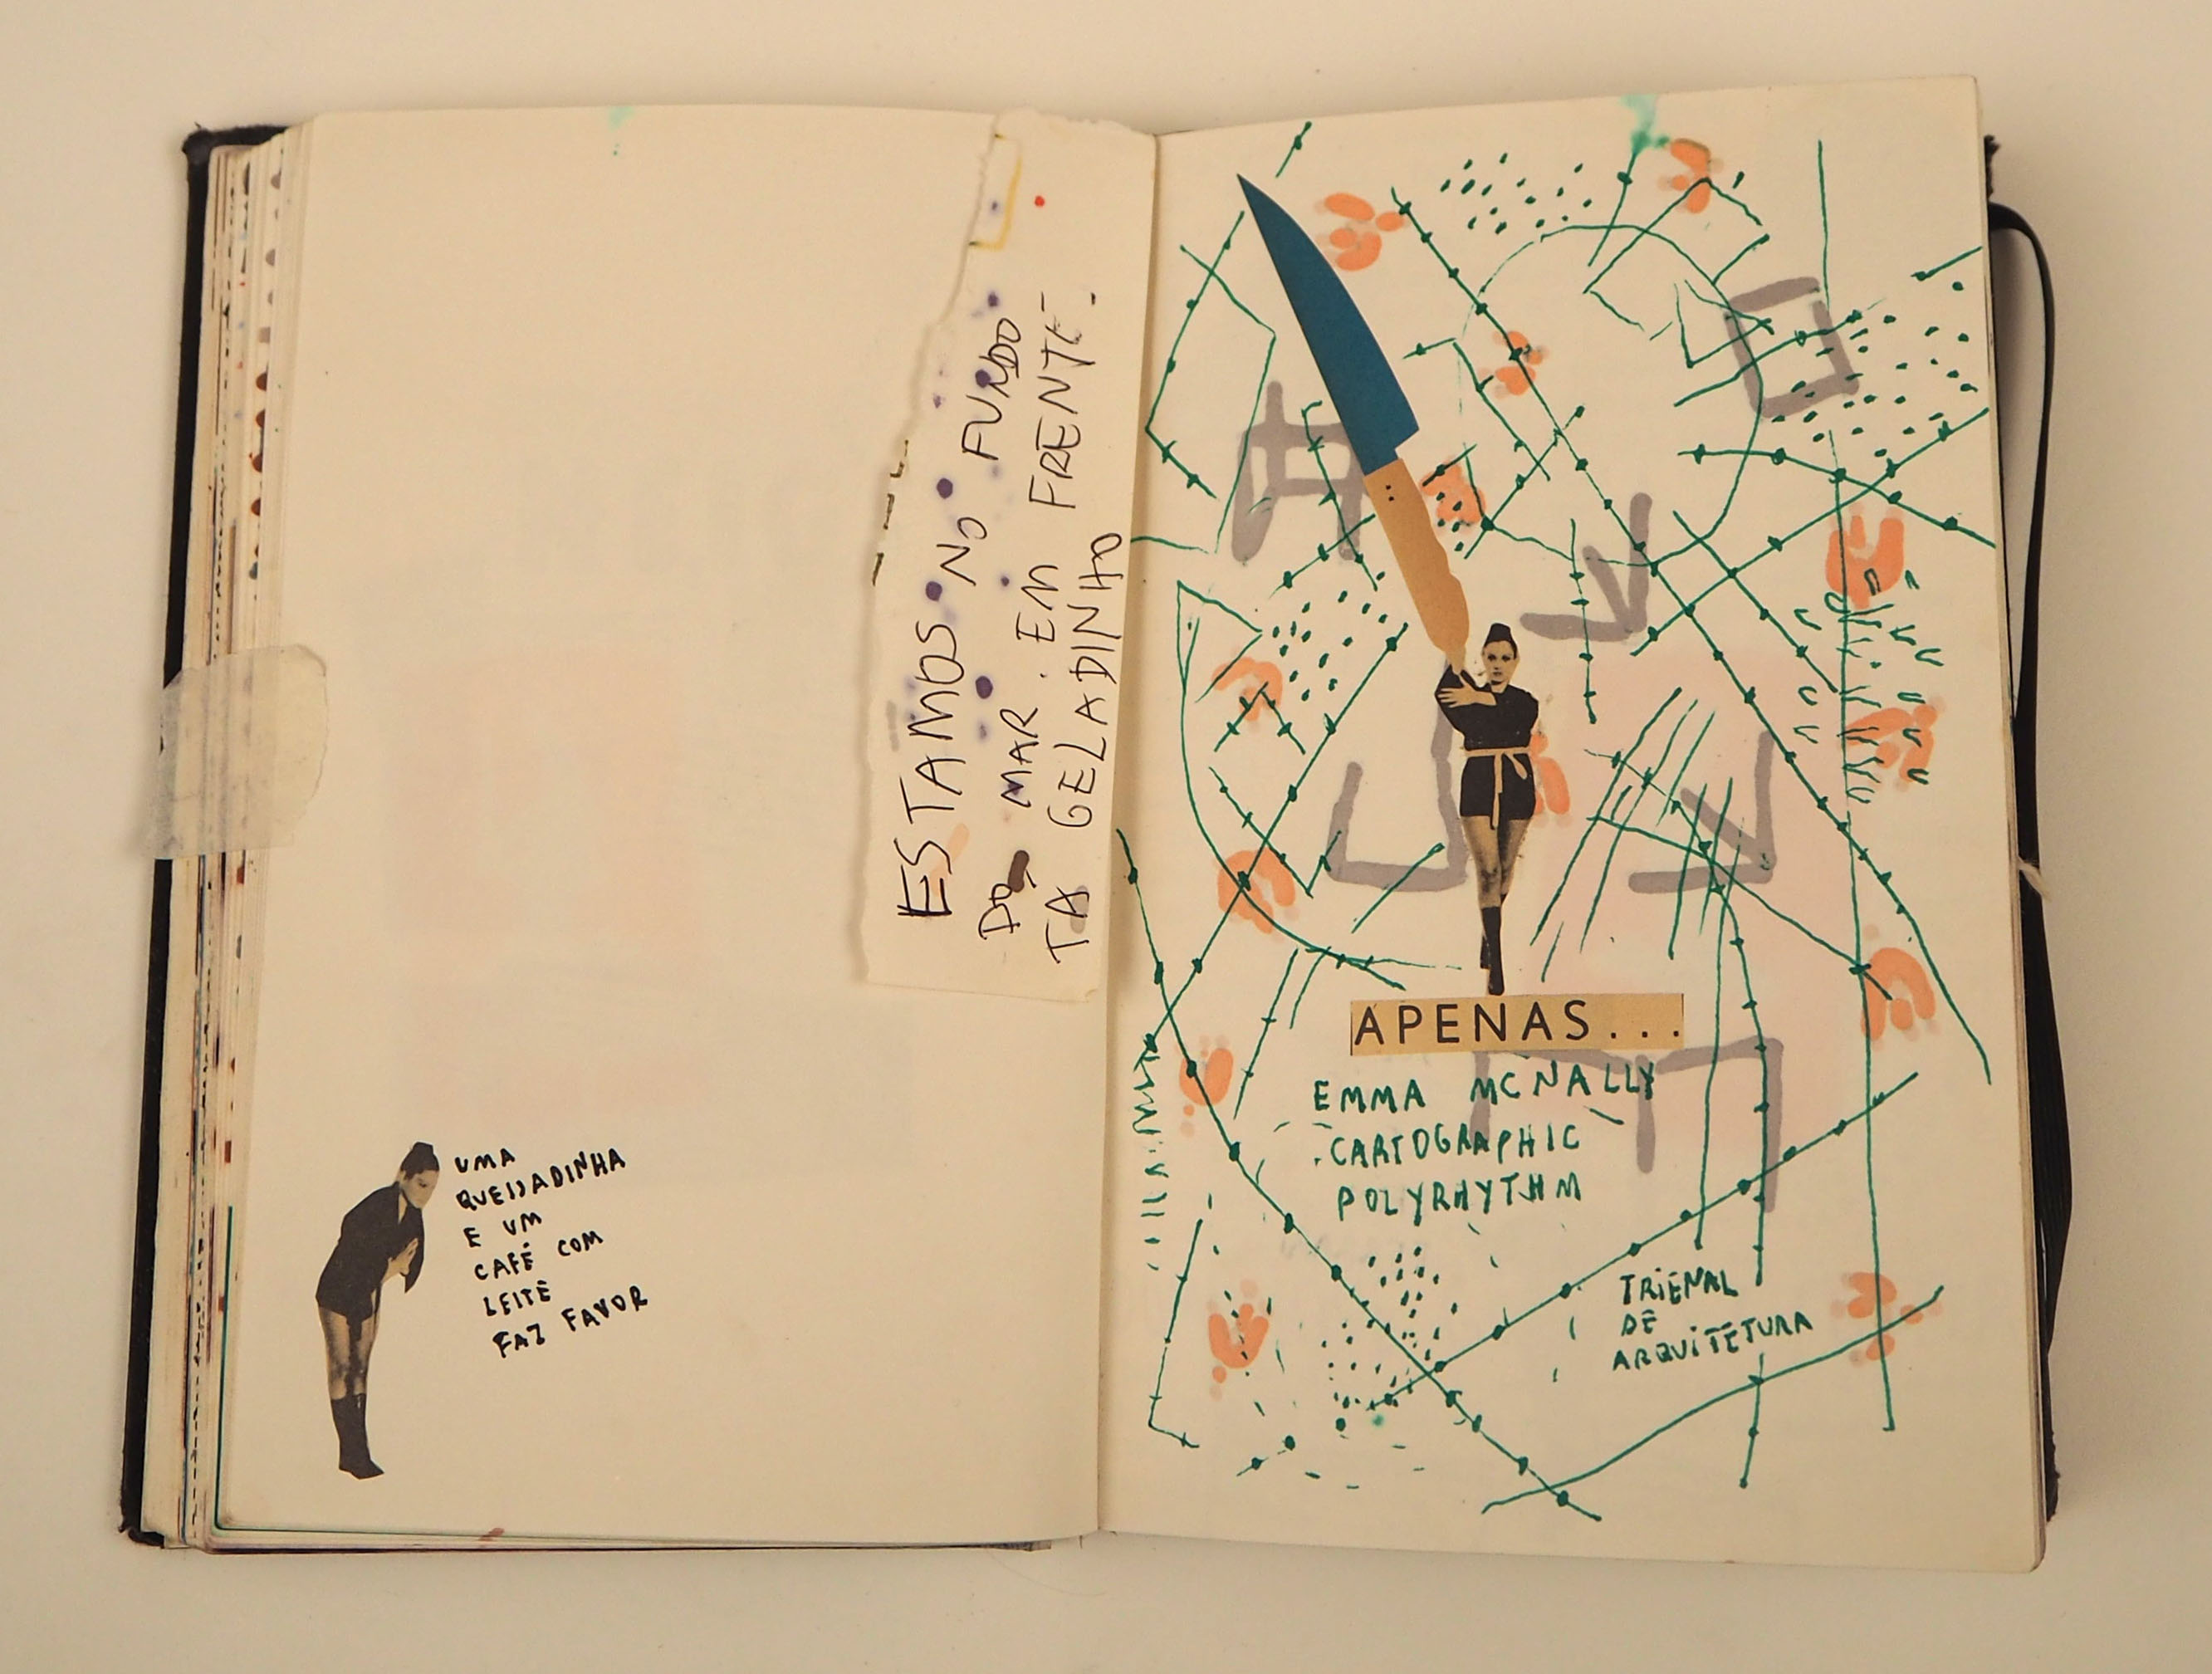 ESTAMOS NO FUNDO
DO MAR. EM FRENTE.
TÁ GELADINHO
UMA
QUEIJADINHA
E UM
CAFÉ COM
LEITE
FAZ FAVOR
APENAS...
EMMA MCNALLY
CARTOGRAPHIC
POLYRHYTHM
TRIENAL
DE
ARQUITETURA